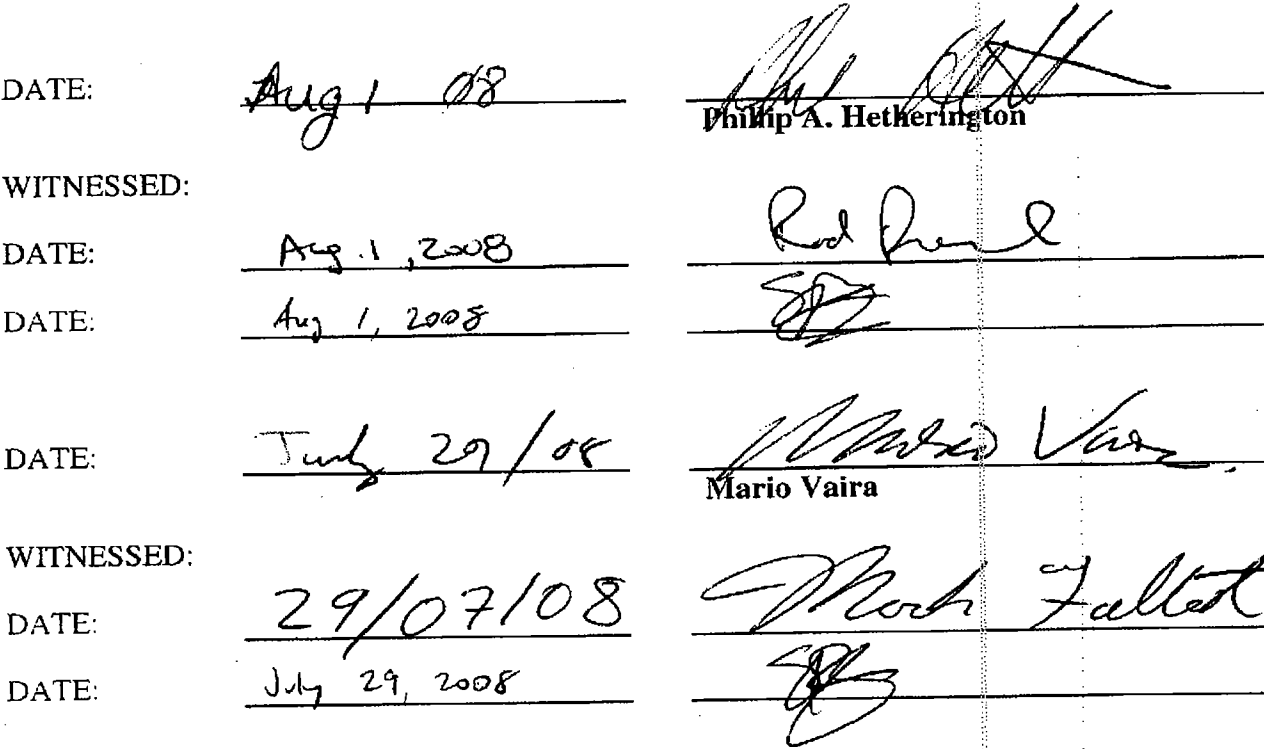 DATE: Aug 1 08
Phillip A. Hetherington
WITNESSED:
DATE: Aug. 1, 2008 Rod
DATE: Aug 1, 2008
DATE: July 29/08 Mario Vaira
Mario Vaira
WITNESSED:
DATE: 29/07/08 Mark
DATE: July 29, 2008